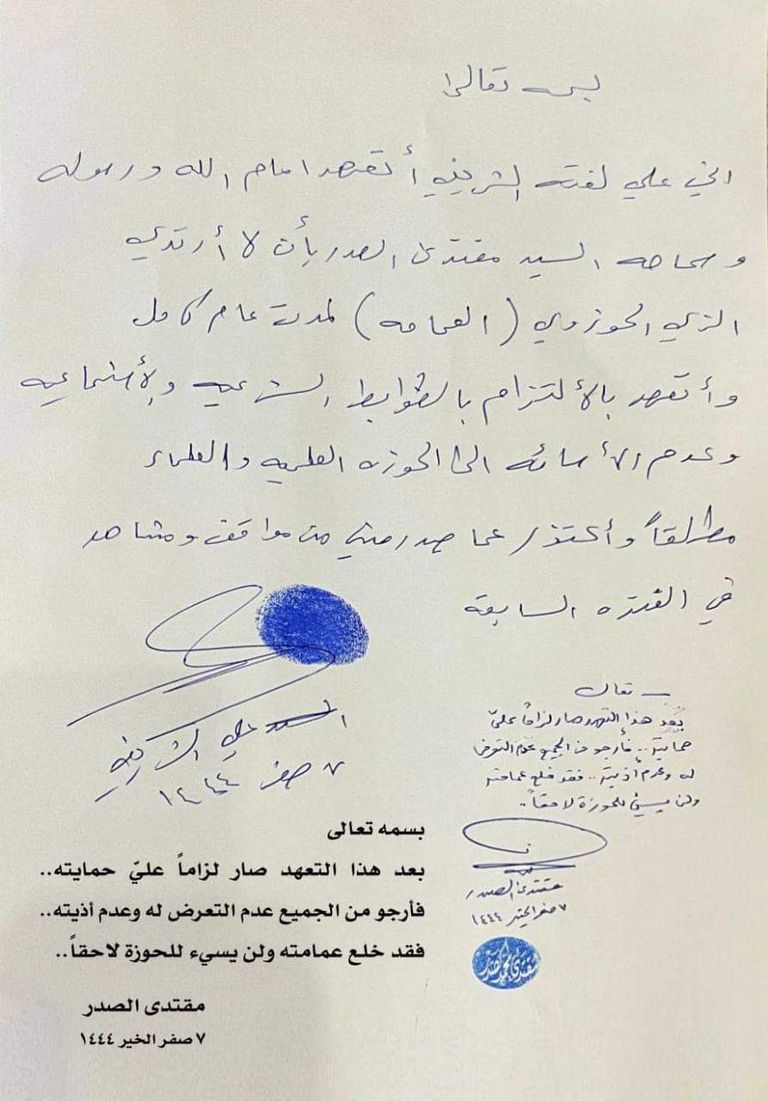 بسمه تعالى
اني علي لفته الشريفي أتعهد امام الله ورسوله
وسماحه السيد مقتدى الصدر بأن لا أرتدي
الزي الحوزوي (العمامه) لمدت عام كامل
وأتعهد بالألتزام بالظوابط الشرعيه والأجتماعيه
وعدم الأسائه الى الحوزه العلميه والعلماء
مطالقاً وأعتذر عما صدر مني من مواقف ومشاهد
في الفتره السابقه
السيد علي الشريفي
٧ صفر ١٤٤٤
بسمه تعالى
بعد هذا التعهد صار لزاماً عليّ
حمايته.. فأرجو من الجميع عدم التعرض
له وعدم أذيته.. فقد خلع عمامته
ولن يسيئ للحوزة لاحقاً..
مقتدى الصدر
٧ صفر الخير ١٤٤٤
بسمه تعالى
بعد هذا التعهد صار لزاماً عليّ حمايته..
فأرجو من الجميع عدم التعرض له وعدم أذيته..
فقد خلع عمامته ولن يسيء للحوزة لاحقاً..
مقتدى الصدر
٧ صفر الخير ١٤٤٤